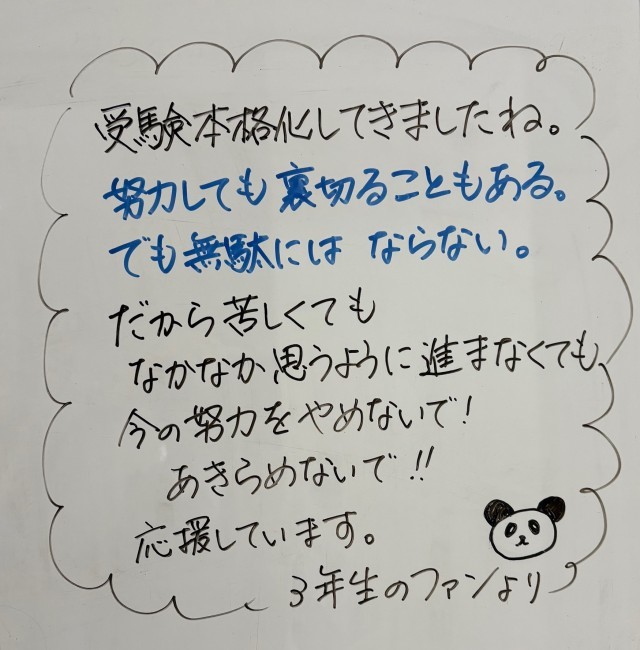 受験本格化してきましたね。
努力しても裏切ることもある。
でも無駄にはならない。
だから苦しくても
なかなか思うように進まなくても
今の努力をやめないで!
あきらめないで!!
応援しています。
3年生のファンより